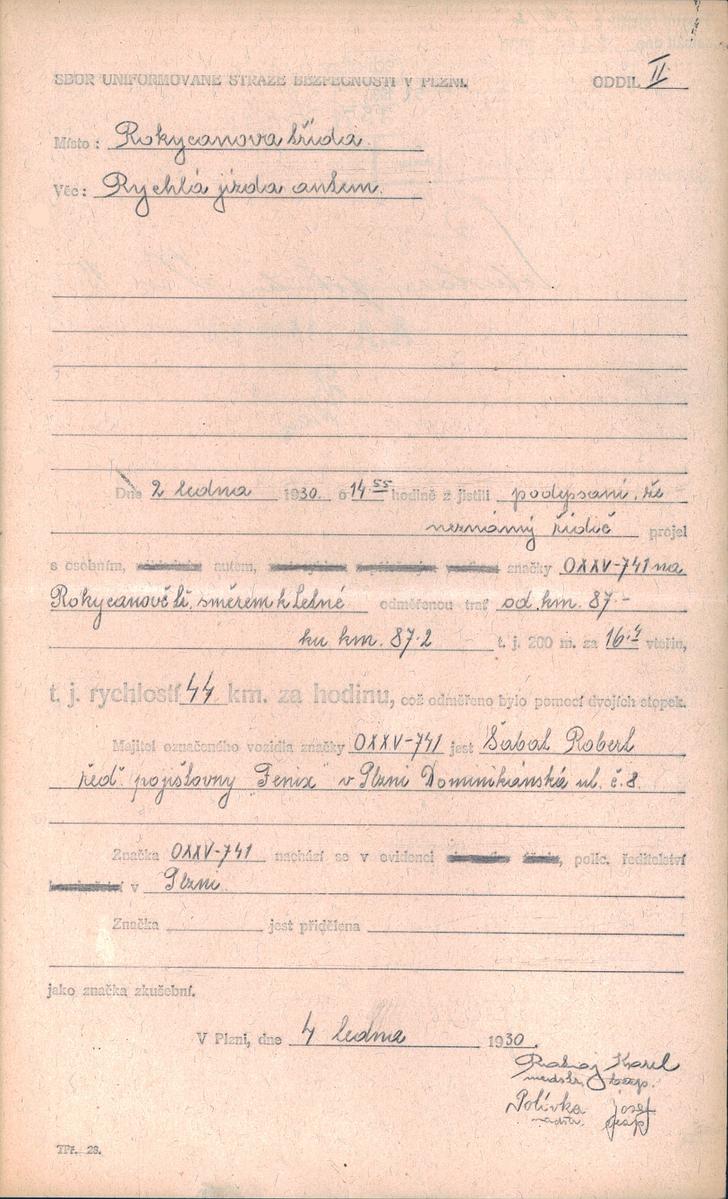 SBOR UNIFORMOVANÉ STRÁŽE BEZPEČNOSTI V PLZNI. ODDÍL II
Místo: Rokycanova třída
Věc: Rychlá jízda autem.
Dne 2 ledna 1930. o 14 55 hodině zjistili podepsaní, že
neznámý řidič projel
s osobním, autem, značky OXXV-741 na
Rokycanově tř. směrem k Letné odměřenou trať od km. 87.-
ku km. 87.2 t. j. 200 m. za 16.4 vteřin,
t. j. rychlostí 44 km. za hodinu, což odměřeno bylo pomocí dvojích stopek.
Majitel označeného vozidla značky OXXV-741 jest Šabat Robert
řed. pojišťovny "Fenix" v Plzni Dominikánská ul. č. 8.
Značka OXXV-741 nachází se v evidenci , polic. ředitelství
v Plzni.
Značka jest přidělena
jako značka zkušební.
V Plzni, dne 4 ledna 1930.
Karel
Polívka Josef
TPř. 28.